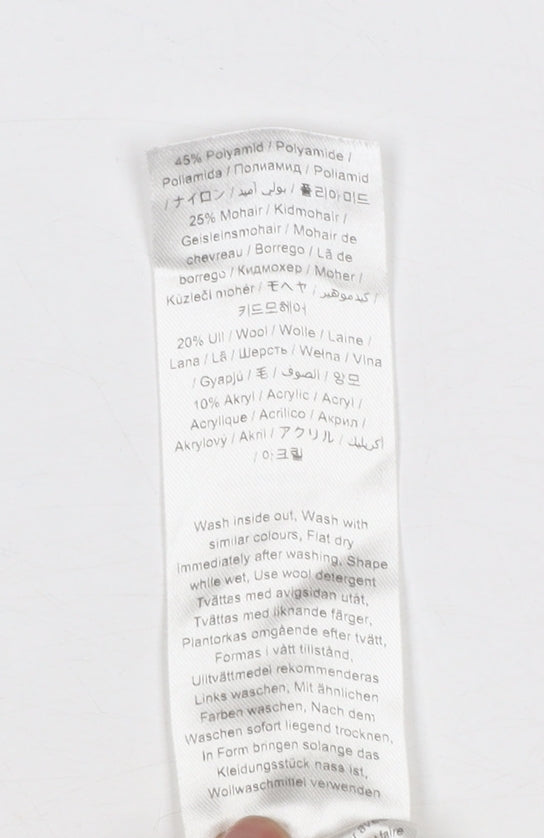 45% Polyamid / Polyamide /
Poliamida / Полиамид / Poliamid
/ ナイロン / بولي أميد / 폴리아미드
25% Mohair / Kidmohair /
Geisleinsmohair / Mohair de
chevreau / Borrego / Lã de
borrego / Кидмохер / Moher /
Kůzlečí mohér / モヘヤ / كيدموهير /
키드모헤어
20% Ull / Wool / Wolle / Laine /
Lana / Lã / Шерсть / Wełna / Vlna
/ Gyapjú / 毛 / الصوف / 양모
10% Akryl / Acrylic / Acryl /
Acrylique / Acrílico / Акрил /
Akrylový / Akril / アクリル / اكريليك
/ 아크릴
Wash inside out, Wash with
similar colours, Flat dry
immediately after washing, Shape
while wet, Use wool detergent
Tvättas med avigsidan utåt,
Tvättas med liknande färger,
Plantorkas omgående efter tvätt,
Formas i vått tillstånd,
Ulltvättmedel rekommenderas
Links waschen, Mit ähnlichen
Farben waschen, Nach dem
Waschen sofort liegend trocknen,
In Form bringen solange das
Kleidungsstück nass ist,
Wollwaschmittel verwenden